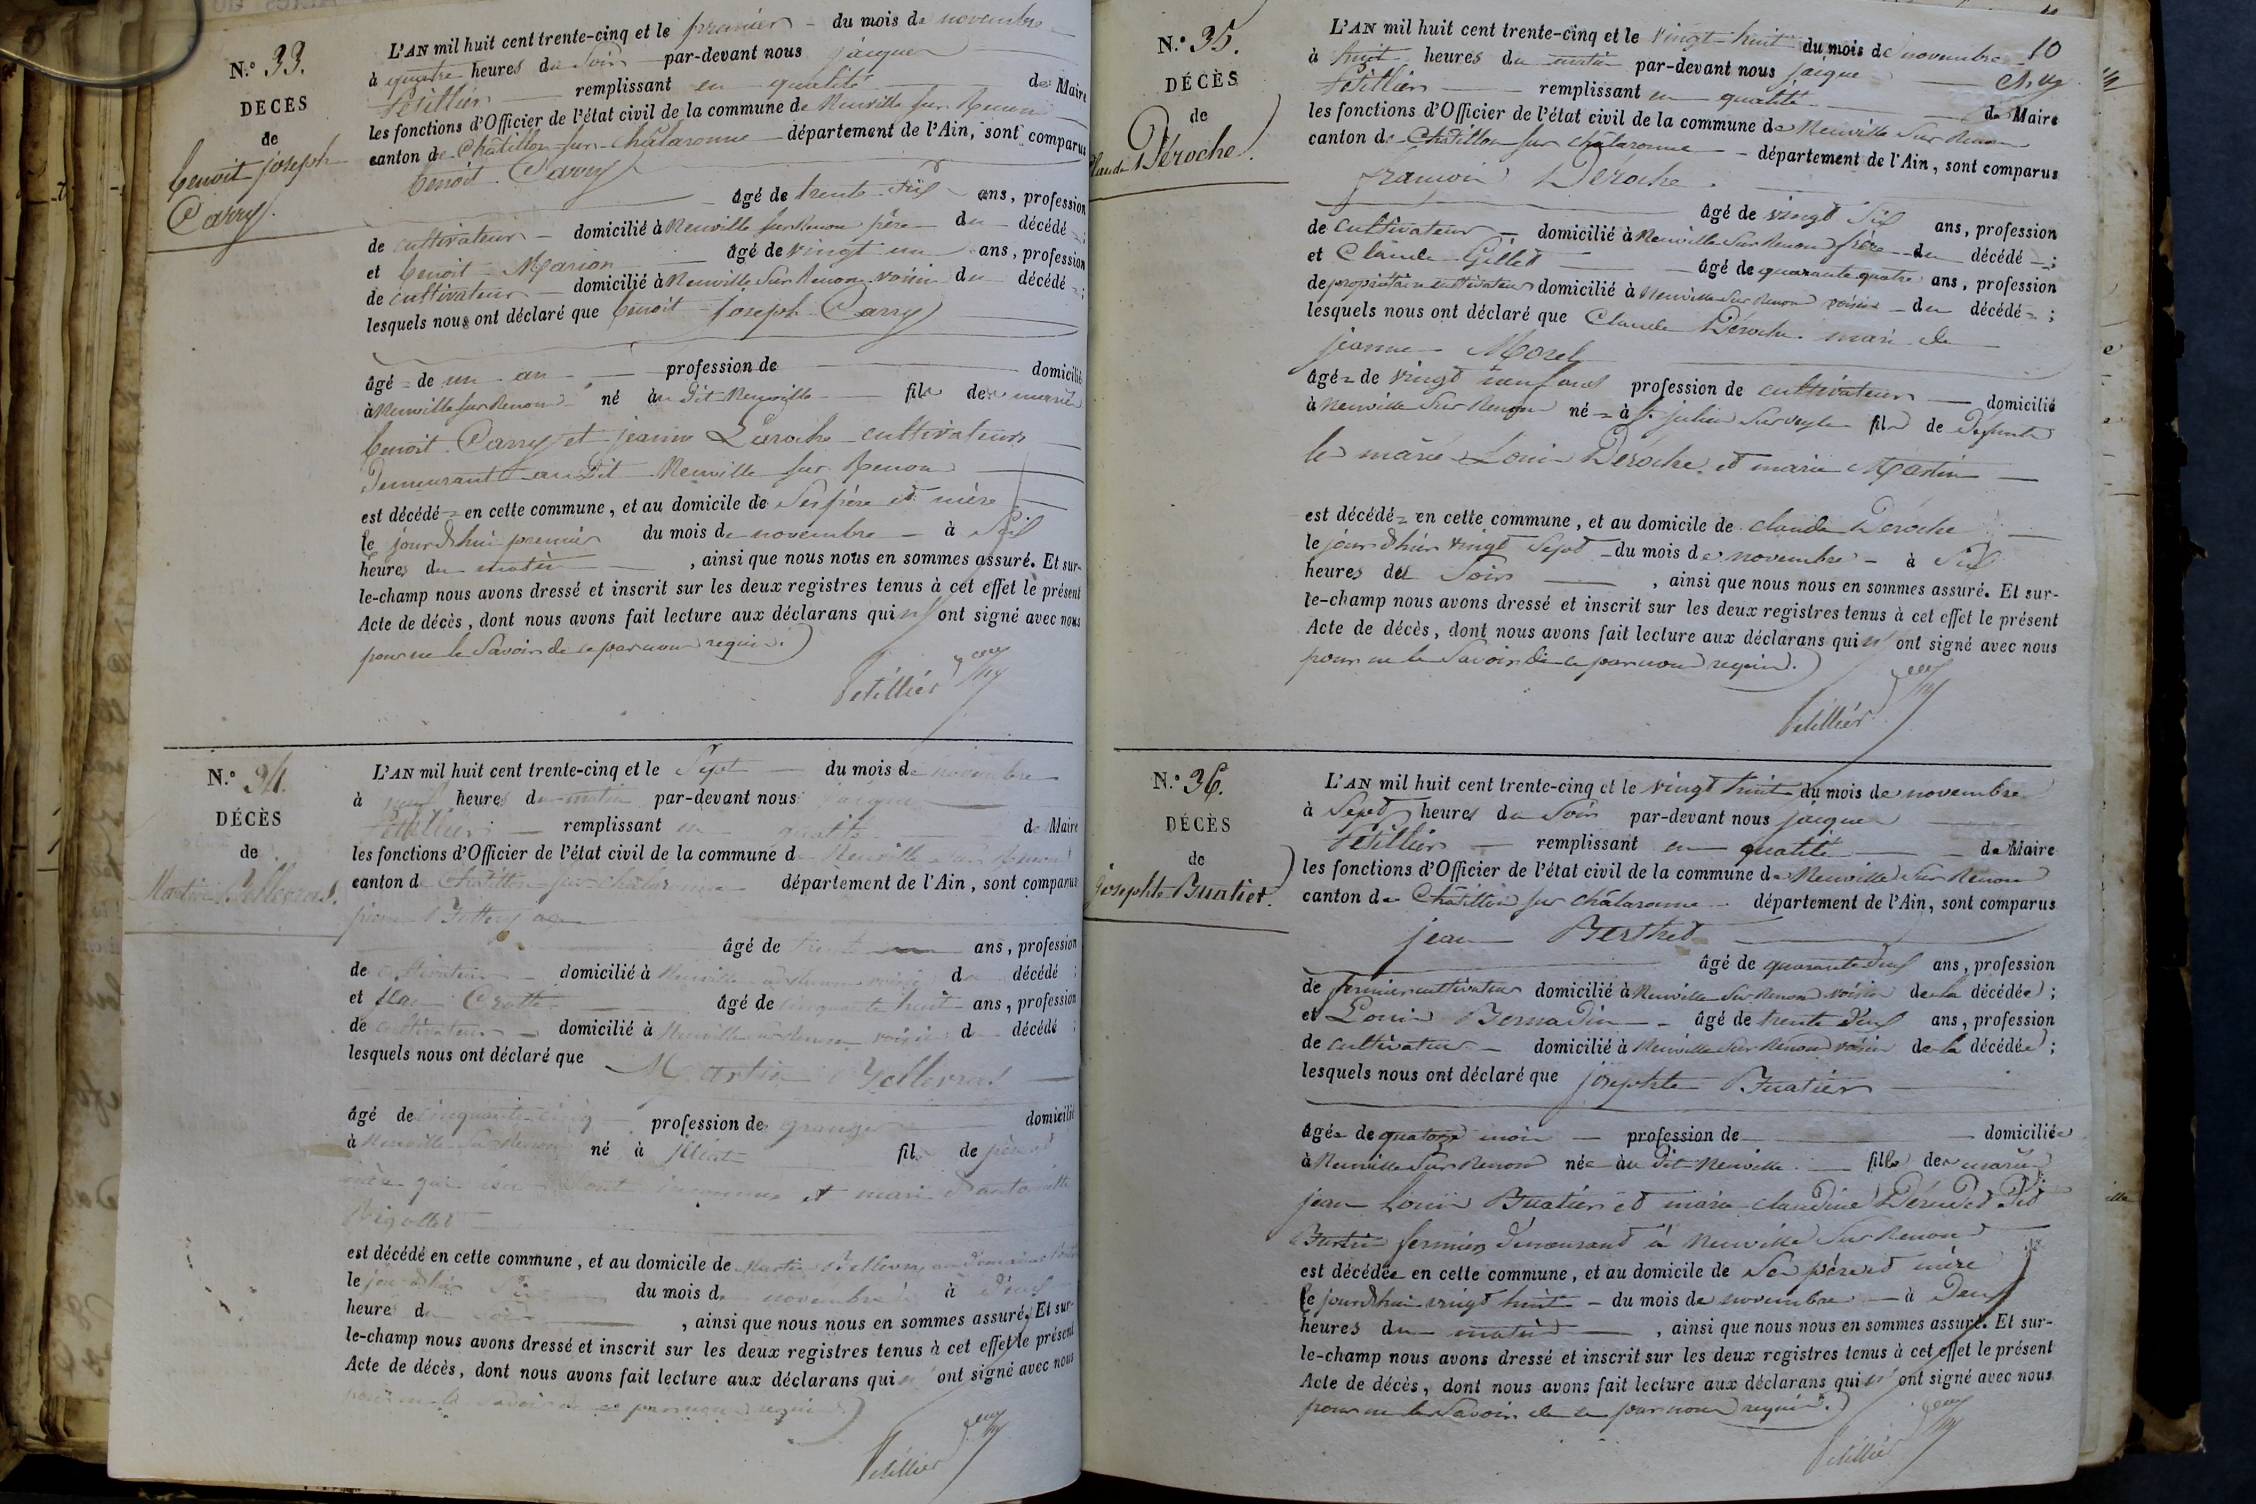 N.º 33.
DÉCÈS
de
benoit joseph
Carry.
L'AN mil huit cent trente-cinq et le premier du mois de novembre
à quatre heures du Soir par-devant nous jacques
Petillier remplissant en qualité de Maire
les fonctions d'Officier de l'état civil de la commune de Neuville sur Renon
canton de Châtillon sur Châlaronne département de l'Ain, sont comparus
benoit Carry
âgé de trente Six ans, profession
de cultivateur domicilié à Neuville sur Renon père du décédé ;
et benoit Marion âgé de vingt un ans, profession
de cultivateur domicilié à Neuville Sur Renon voisin du décédé ;
lesquels nous ont déclaré que benoit joseph Carry
âgé de un an profession de domicilié
à Neuville sur Renon né au dit Neuville fils de mariés
benoit Carry et jeanne Laroche cultivateurs
demeurant au dit Neuville sur Renon
est décédé en cette commune, et au domicile de Ses père et mère
le jourdhui premier du mois de novembre à Six
heures du matin , ainsi que nous nous en sommes assuré. Et sur-
le-champ nous avons dressé et inscrit sur les deux registres tenus à cet effet le présent
Acte de décès, dont nous avons fait lecture aux déclarans qui n' ont signé avec nous
pour ne le Savoir de ce par nous requis.
Petillier
N.º 34.
DÉCÈS
de
Martin Bellevras.
L'AN mil huit cent trente-cinq et le Sept du mois de novembre
à neuf heures du matin par-devant nous jacques
Petillier remplissant en qualité de Maire
les fonctions d'Officier de l'état civil de la commune de Neuville sur Renon
canton de Châtillon sur Châlaronne département de l'Ain, sont comparus
pierre
âgé de trente ans, profession
de cultivateur domicilié à Neuville sur Renon voisin du décédé ;
et jean âgé de cinquante huit ans, profession
de cultivateur domicilié à Neuville sur Renon voisin du décédé ;
lesquels nous ont déclaré que Martin Bellevras
âgé de cinquante cinq profession de granger domicilié
à Neuville Sur Renon né à fils de père et
mère qui Sont inconnus et mari d'antoinette
Rigollet
est décédé en cette commune, et au domicile de Martin
le jour d'hier Six du mois de novembre à
heures du Soir , ainsi que nous nous en sommes assuré. Et sur-
le-champ nous avons dressé et inscrit sur les deux registres tenus à cet effet le présent
Acte de décès, dont nous avons fait lecture aux déclarans qui n' ont signé avec nous
pour ne le Savoir de ce par nous requis
Petillier
10
N.º 35.
DÉCÈS
de
Claude Déroche.
L'AN mil huit cent trente-cinq et le vingt huit du mois de novembre
à huit heures du matin par-devant nous jacque
Petillier remplissant en qualité de Maire
les fonctions d'Officier de l'état civil de la commune de Neuville Sur Renon
canton de Châtillon sur Châlaronne département de l'Ain, sont comparus
françois Déroche
âgé de vingt Six ans, profession
de cultivateur domicilié à Neuville Sur Renon frère du décédé ;
et Claude Gillet âgé de quarante quatre ans, profession
de propriétaire cultivateur domicilié à Neuville Sur Renon voisin du décédé ;
lesquels nous ont déclaré que Claude Déroche mari de
jeanne Morel
âgé de vingt neuf ans profession de cultivateur domicilié
à Neuville Sur Renon né à St. julien Sur veyle fils de défunts
les mariés Louis Déroche et marie Martin
est décédé en cette commune, et au domicile de claude Déroche
le jour d'hier vingt Sept du mois de novembre à Six
heures du Soir , ainsi que nous nous en sommes assuré. Et sur-
le-champ nous avons dressé et inscrit sur les deux registres tenus à cet effet le présent
Acte de décès, dont nous avons fait lecture aux déclarans qui n' ont signé avec nous
pour ne le Savoir de ce par nous requis.
Petillier
N.º 36.
DÉCÈS
de
josephte Buatier.
L'AN mil huit cent trente-cinq et le vingt huit du mois de novembre
à Sept heures du Soir par-devant nous jacques
Petillier remplissant en qualité de Maire
les fonctions d'Officier de l'état civil de la commune de Neuville Sur Renon
canton de Châtillon sur Châlaronne département de l'Ain, sont comparus
jean Berthet
âgé de quarante deux ans, profession
de fermier cultivateur domicilié à Neuville Sur Renon voisin de la décédée ;
et Louis Bernadin âgé de trente deux ans, profession
de cultivateur domicilié à Neuville Sur Renon voisin de la décédée ;
lesquels nous ont déclaré que josephte Buatier
âgée de quatorze mois profession de domiciliée
à Neuville Sur Renon née au dit Neuville fille de mariés
jean Louis Buatier et marie claudine
fermier demeurant à Neuville Sur Renon
est décédée en cette commune, et au domicile de Ses père et mère
le jourdhui vingt huit du mois de novembre à Deux
heures du matin , ainsi que nous nous en sommes assuré. Et sur-
le-champ nous avons dressé et inscrit sur les deux registres tenus à cet effet le présent
Acte de décès, dont nous avons fait lecture aux déclarans qui n' ont signé avec nous
pour ne le Savoir de ce par nous requis.
Petillier